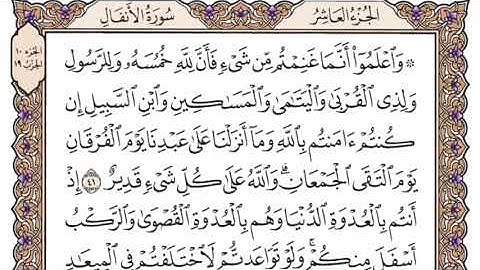 الجُزْءُ العَاشِرُ
سُورَةُ الأَنفَالِ
الجزء ١٠
الحزب ١٩
۞ وَٱعْلَمُوٓا۟ أَنَّمَا غَنِمْتُم مِّن شَىْءٍ فَأَنَّ لِلَّهِ خُمُسَهُۥ وَلِلرَّسُولِ
وَلِذِى ٱلْقُرْبَىٰ وَٱلْيَتَٰمَىٰ وَٱلْمَسَٰكِينِ وَٱبْنِ ٱلسَّبِيلِ إِن
كُنتُمْ ءَامَنتُم بِٱللَّهِ وَمَآ أَنزَلْنَا عَلَىٰ عَبْدِنَا يَوْمَ ٱلْفُرْقَانِ
يَوْمَ ٱلْتَقَى ٱلْجَمْعَانِ ۗ وَٱللَّهُ عَلَىٰ كُلِّ شَىْءٍ قَدِيرٌ ٤١ إِذْ
أَنتُم بِٱلْعُدْوَةِ ٱلدُّنْيَا وَهُم بِٱلْعُدْوَةِ ٱلْقُصْوَىٰ وَٱلرَّكْبُ
أَسْفَلَ مِنكُمْ ۚ وَلَوْ تَوَاعَدتُّمْ لَٱخْتَلَفْتُمْ فِى ٱلْمِيعَٰدِ